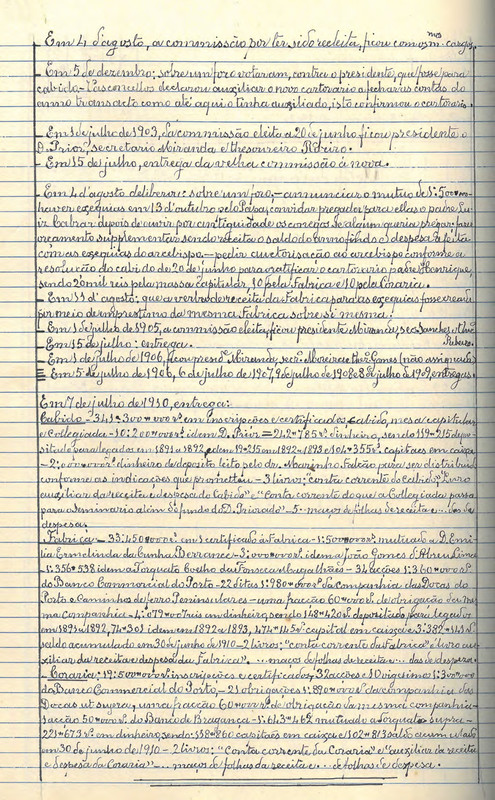 Em 4 d'agosto, a commissão por ter sido reeleita, ficou com os m.mos cargos.
Em 5 de dezembro: sobre um foro votaram, contra o presidente, que fosse para
cabido - Vasconcellos declarou auxiliar o novo cartorario a fechar as contas do
anno transacto como até aqui o tinha auxiliado, isto confirmou o cartorario.
Em 1 de julho de 1903, da commissão eleita a 20 de junho ficou presidente o
D. Prior, secretario Miranda e thesoureiro Ribeiro.
Em 15 de julho, entrega da velha commissão á nova.
Em 4 d'agosto deliberar: sobre um foro, - annunciar o mutuo de 1:500#000
haver exequias em 13 d'outubro pelo Papa; convidar pregador para ellas o padre Lu-
iz Cabral depois de ouvir por antiguidade os conegos se algum queria prégar; fazer
orçamento supplementar sendo receita o saldo do anno findo e despesa
com as exequias do arcebispo. - pedir auctorisação ao arcebispo conforme a
resolução do cabido de 20 de junho para gratificar o cartorario padre Henrique,
sendo 20 mil reis pela massa capitular, 10 pela Fabrica e 10 pela Coraria.
Em 11 d'agosto: que a verba de receita da Fabrica para das exequias fosse realisada
por meio de emprestimo da mesma Fabrica sobre si mesma.
Em 1 de julho de 1905, a commissão eleita, ficou presidente Miranda, sec. Sanches e th.
Ribeiro.
Em 15 de julho: entrega.
Em 1 de julho de 1906, ficou presid. Miranda, secr.º Moreira e thes. Gomes (não assignado)
Em 5 de julho de 1906, 6 de julho de 1907, 9 de julho de 1908 e 8 de julho de 1909, entregas.
Em 7 de julho de 1910, entrega:
Cabido - 341:300#000 r.s em inscripções e certificados Cabido, massa capitular
e Collegiada - 10:200#000 r.s idem D. Prior = 242#785 r.s dinheiro, sendo 119#215 depo-
sito para legados em 1891 a 1892, idem 19#215 em 1892-1893 e 104#355 r.s capitaes em caixa
- 2:000#000 r.s dinheiro de deposito feito pelo dr. Marinho Falcão para ser distribuido
conforme as indicações que prometteu - 3 livros: "conta corrente do Cabido" "Livro
auxiliar da receita e despesa do Cabido" e "Conta corrente do que a Collegiada passa
para o Seminario além do fundo do D. Priorado" - 5 maços de folhas de receita e ... das de
despesa.
Fabrica - 33:450#000 r.s em 1 certificado á Fabrica - 1:500#000 r.s mutuado a D. Emi-
lia Ermelinda da Cunha Berrance - 3:000#000 r.s idem a João Gomes d'Abreu Lima
- 1:356#538 idem a Torquato Coelho da Fonseca - 34 acções 1:360#000 r.s
do Banco Commercial do Porto - 22 ditas 1:980#000 r.s da Companhia das Docas do
Porto e Caminhos de ferro Peninsulares - uma fracção 60#000 r.s de obrigação da mes-
ma companhia - 4:079#007 reis em dinheiro, sendo 148#420 r.s depositado para legados
em 1891 a 1892, 74#301 idem em 1892 a 1893, 474#145 r.s capital em caixa e 3:382#141 r.s
saldo accumulado em 30 de junho de 1910 - 2 livros: "conta corrente da Fabrica" e livro au-
xiliar da receita e despesa da Fabrica", ... maços de folhas de receita e ... das de despesa.
Coraria - 19:500#000 r.s inscripções e certificados, 32 acções e 10 vigesimos 1:300#000
do Banco Commercial do Porto, - 21 obrigações 1:890#000 r.s da companhia das
Docas ut supra, uma fracção 60#000 r.s de obrigação da mesma companhia -
1 acção 50#000 r.s do Banco de Bragança - 1:643#462 mutuado a Torquato supra -
221#673 r.s em dinheiro, sendo: 118#860 capitães em caixa e 102#813 saldo accumulado
em 30 de junho de 1910 - 2 livros: "Conta corrente da Coraria" e "auxiliar da receita
e despesa da Coraria" ... maços de folhas da receita e ... de folhas de despesa.